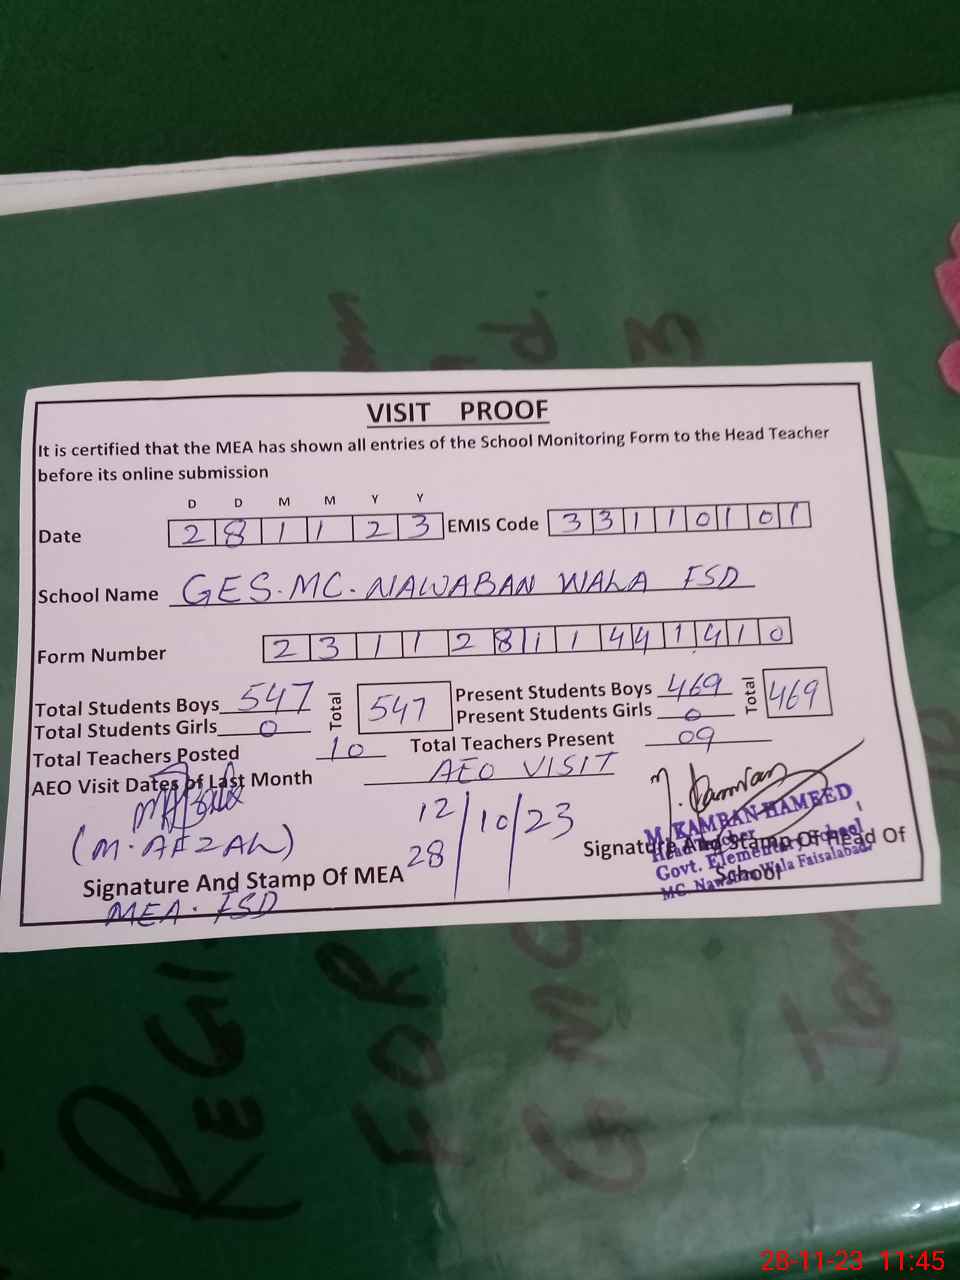 VISIT PROOF
It is certified that the MEA has shown all entries of the School Monitoring Form to the Head Teacher
before its online submission
D D M M Y Y
Date 2 8 1 1 2 3 EMIS Code 3 3 1 1 0 1 0 1
School Name GES. MC. NAWABAN WALA FSD
Form Number 2 3 1 1 2 8 1 1 4 4 1 4 1 0
Total Students Boys 547 Total 547 Present Students Boys 469 Total 469
Total Students Girls 0 Present Students Girls 0
Total Teachers Posted 10 Total Teachers Present 09
AEO Visit Dates of Last Month AEO VISIT
12 28 / 10 / 23
(M. AFZAL)
Signature And Stamp Of MEA
MEA. FSD
M. Kamran
M. KAMRAN HAMEED
Head Teacher
Govt. Elementary School
MC. Nawaban Wala Faisalabad
Signature And Stamp Of Head Of
School
REGI
FOR
G MC
28-11-23 11:45